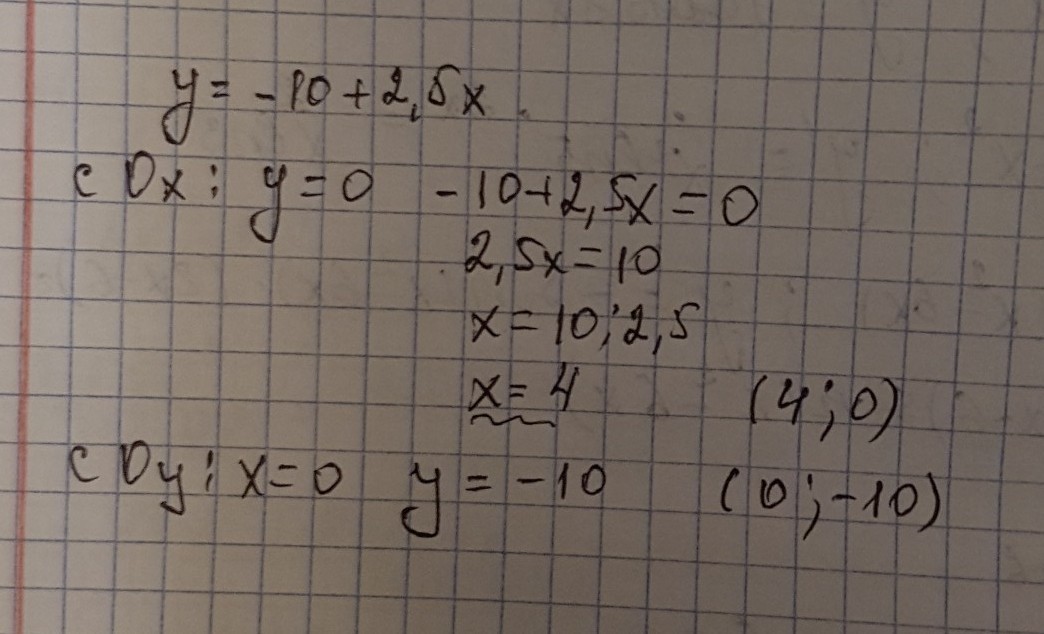 y = -10 + 2,5x
с Ox: y = 0 -10+2,5x = 0
2,5x = 10
x = 10:2,5
x = 4 (4;0)
с Oy: x = 0 y = -10 (0;-10)